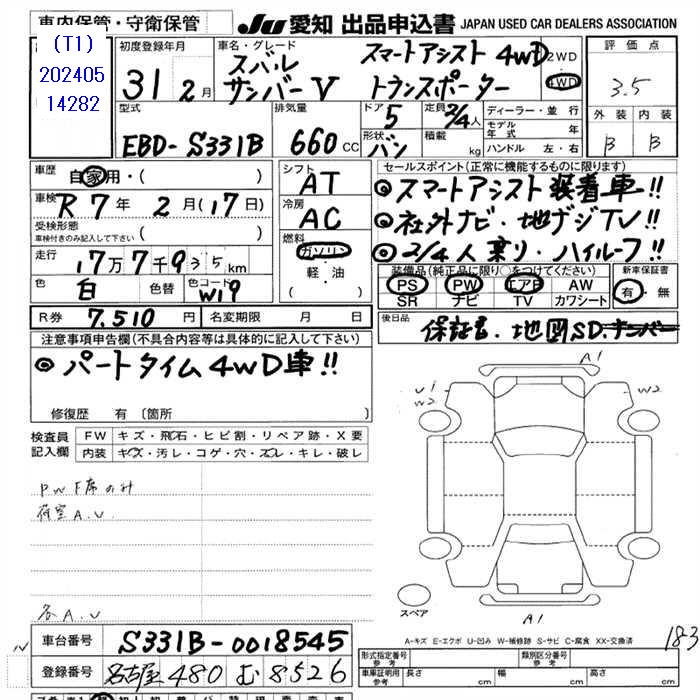 車内保管・守衛保管 JU 愛知 出品申込書 JAPAN USED CAR DEALERS ASSOCIATION
(T1)
202405
14282
初度登録年月 31 2月
車名・グレード スバル スマートアシスト 4WD
サンバーV トランスポーター
2WD
4WD
評価点
3.5
外装 内装
B B
型式 EBD-S331B
排気量 660 CC
ドア 5
定員 2/4人
形状 バン
積載 kg
ディーラー・並行
モデル年式 年
ハンドル 左・右
車歴 自家用・( )
車検 R7年 2月(17日)
受検形態 ( )
車検付きのみ記入して下さい
走行 17万7千9 km
色 白 色替 色コード W19
シフト AT
冷房 AC
燃料 ガソリン
・軽・油
( )
セールスポイント(正常に機能するものに限ります)
◎スマートアシスト装着車!!
◎社外ナビ・地デジTV!!
◎2/4人乗り・ハイルーフ!!
装備品(純正品に限り○をつけてください)
PS PW エアB AW
SR ナビ TV カワシート
新車保証書
有・無
R券 7.510円 名変期限 月 日
後日品 保証書・地図SD
注意事項申告欄(不具合内容等は具体的に記入して下さい)
◎パートタイム4WD車!!
修復歴 有 〔箇所
検査員記入欄
FW キズ・飛石・ヒビ割・リペア跡・X要
内装 キズ・汚レ・コゲ・穴・スレ・キレ・破レ
PW F席のみ
荷室A.U.
各A.U
A1
U1
W2
W2
スペア
A1
A-キズ E-エクボ U-凹み W-補修跡 S-サビ C-腐食 XX-交換済
183
車台番号 S331B-0018545
登録番号 名古屋 480 む 8526
形式指定番号 参考
類別区分番号 参考
車庫証明用 参考 長さ cm 幅 cm 高さ cm